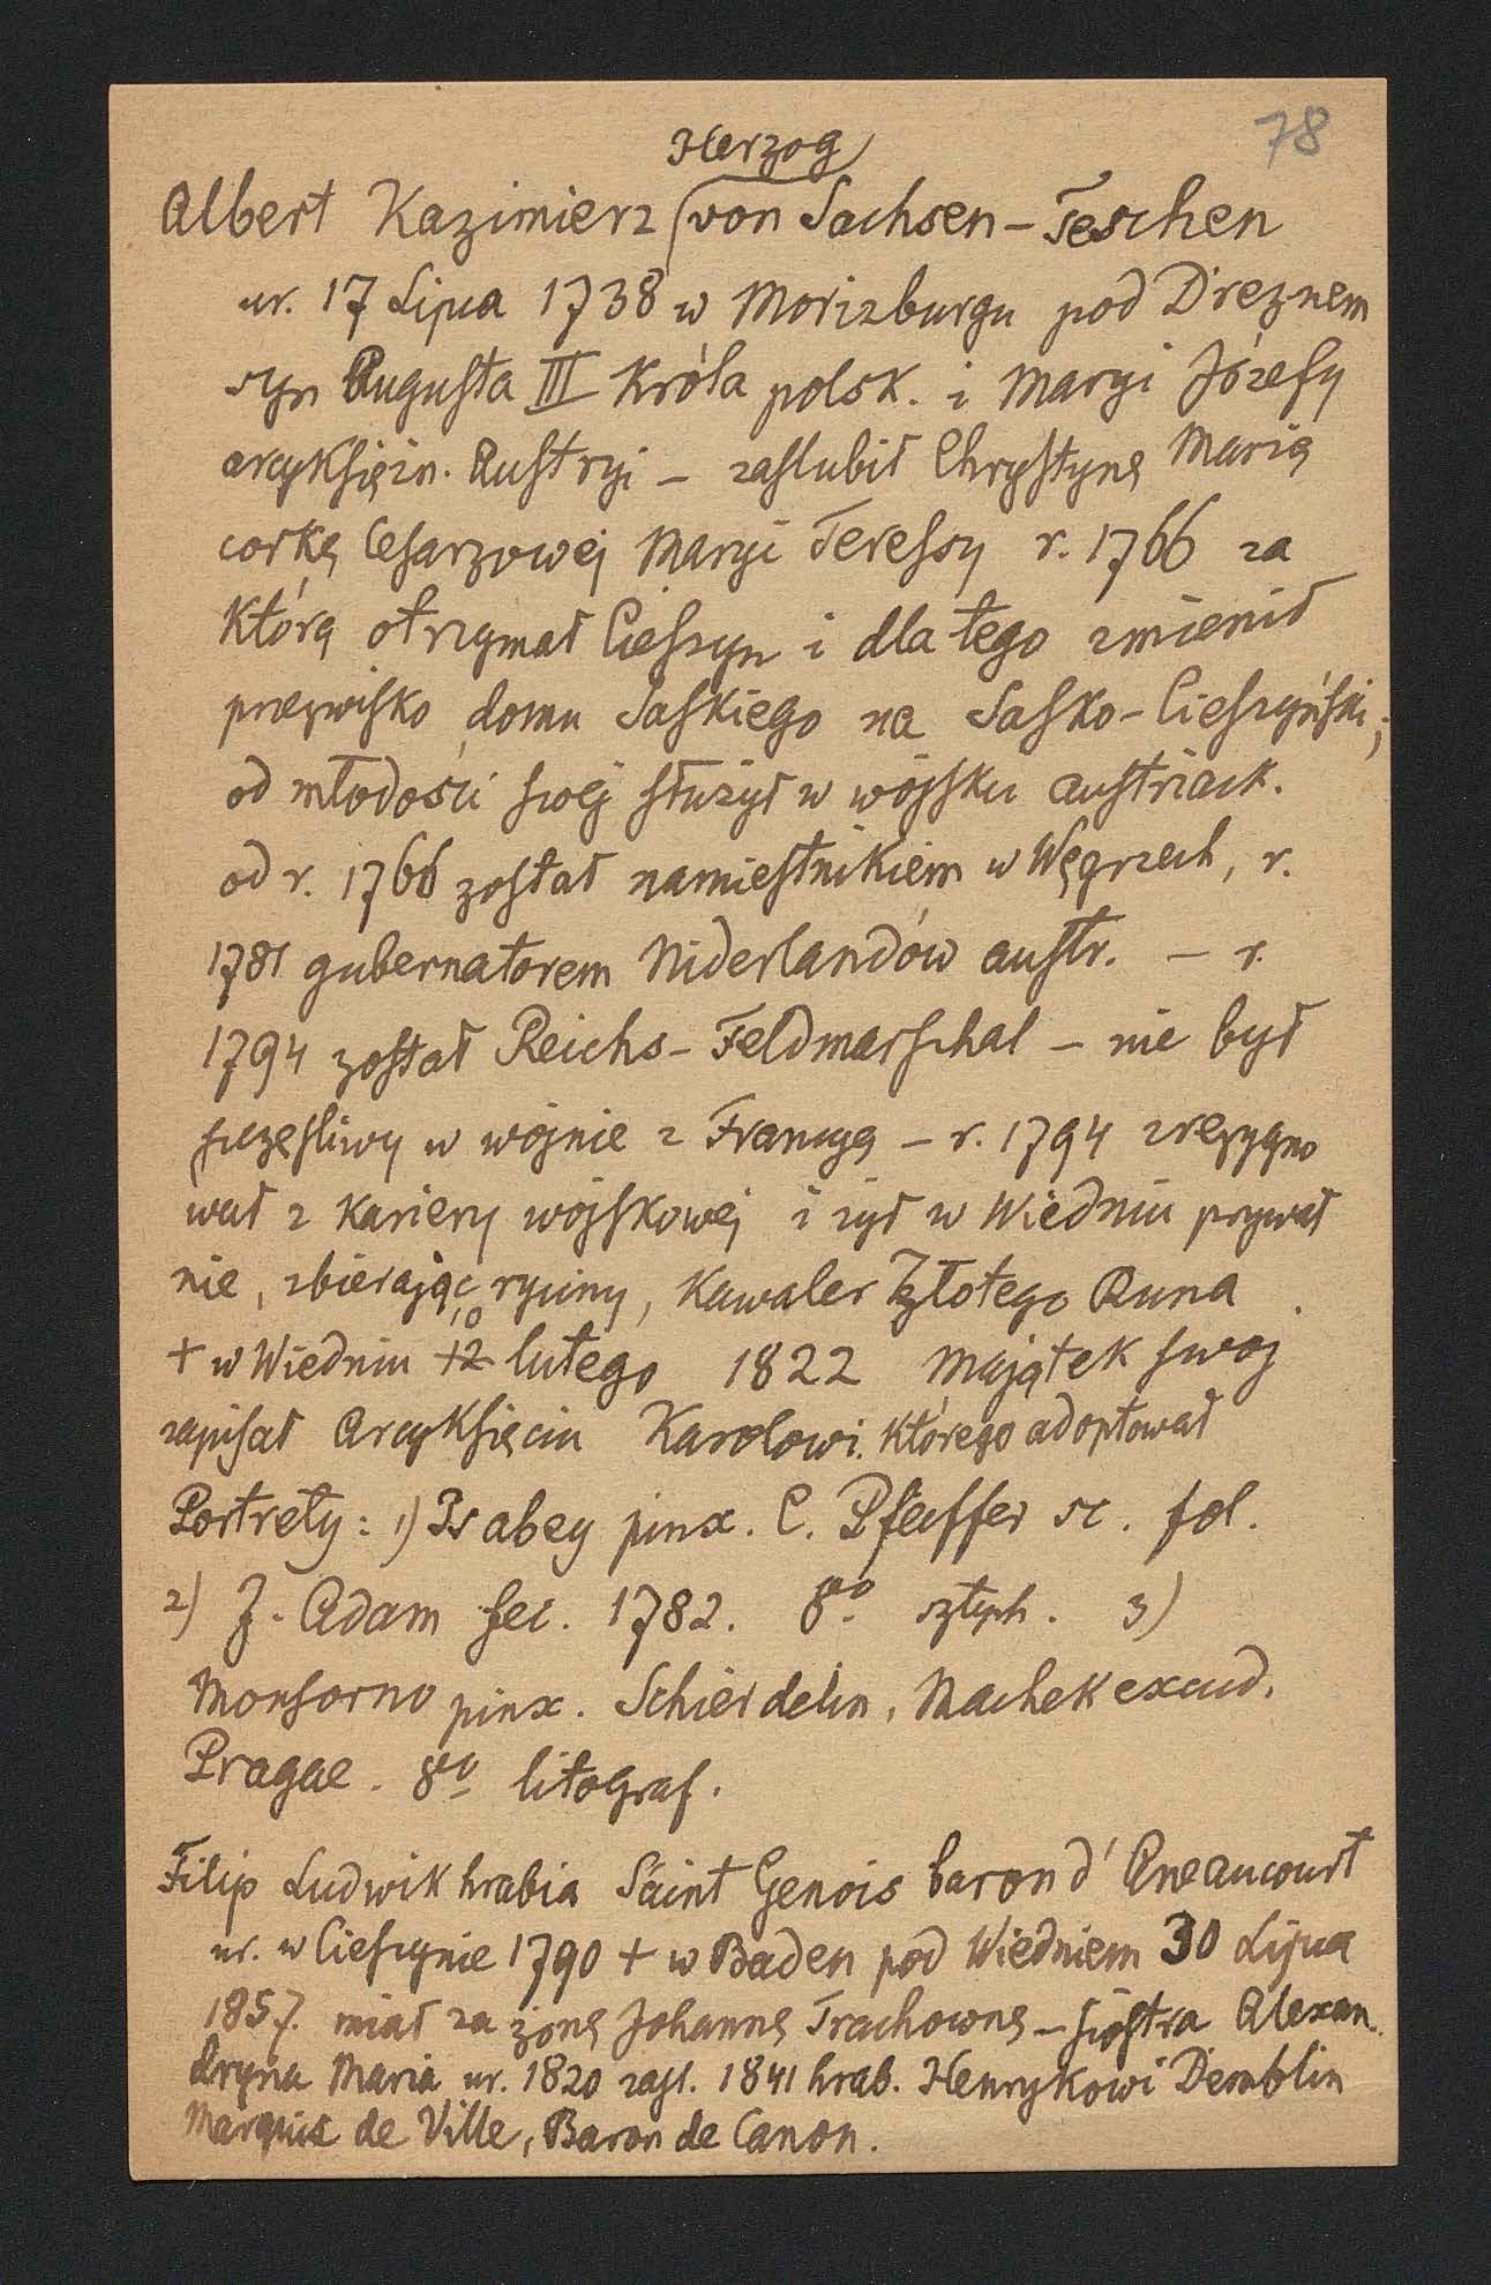 78
Herzog
Albert Kazimierz von Sachsen-Teschen
ur. 17 Lipca 1738 w Morizburgu pod Dreznem
syn Augusta III Króla polsk. i Maryi Józefy
arcyksiężn. Austryi – zaslubił Chrystynę Marię
corkę Cesarzowej Maryi Teressy r. 1766 za
którą otrzymał Cieszyn i dla tego zmienił
przezwisko domu Saskiego na Sasko-Cieszyński;
od młodości swej służył w wojsku austriack.
od r. 1766 został namiestnikiem w Węgrzech, r.
1781 gubernatorem Niderlandów austr. – r.
1794 został Reichs-Feldmarschal – nie był
szczesliwy w wojnie z Francyą – r. 1794 zrezygno
wał z kariery wojskowej i żył w Wiedniu prywat
nie, zbierając ryciny, Kawaler Złotego Runa.
+ w Wiedniu 12 10 lutego 1822 Majątek swoj
zapisał Arcyksięciu Karolowi. którego adoptował
Portrety: 1) Isabey pinx. C. Pfeiffer sc. fol.
2) J. Adam fec. 1782. 8vo sztych. 3)
Monsorno pinx. Schier delin, Machek excud.
Pragae. 8vo litograf.
Filip Ludwik hrabia Saint Genois baron d'Aneaucourt
ur. w Cieszynie 1790 + w Baden pod Wiedniem 30 Lipca
1857. miał za żonę Johannę Trachownę – siostra Alexan
dryna Maria ur. 1820 zasl. 1841 hrab. Henrykowi Demblin
Marquis de Ville, Baron de Canon.